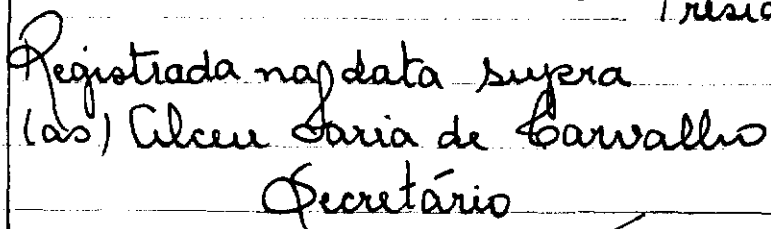 Registrada na data supra
(as) Alceu Faria de Carvalho
Secretário